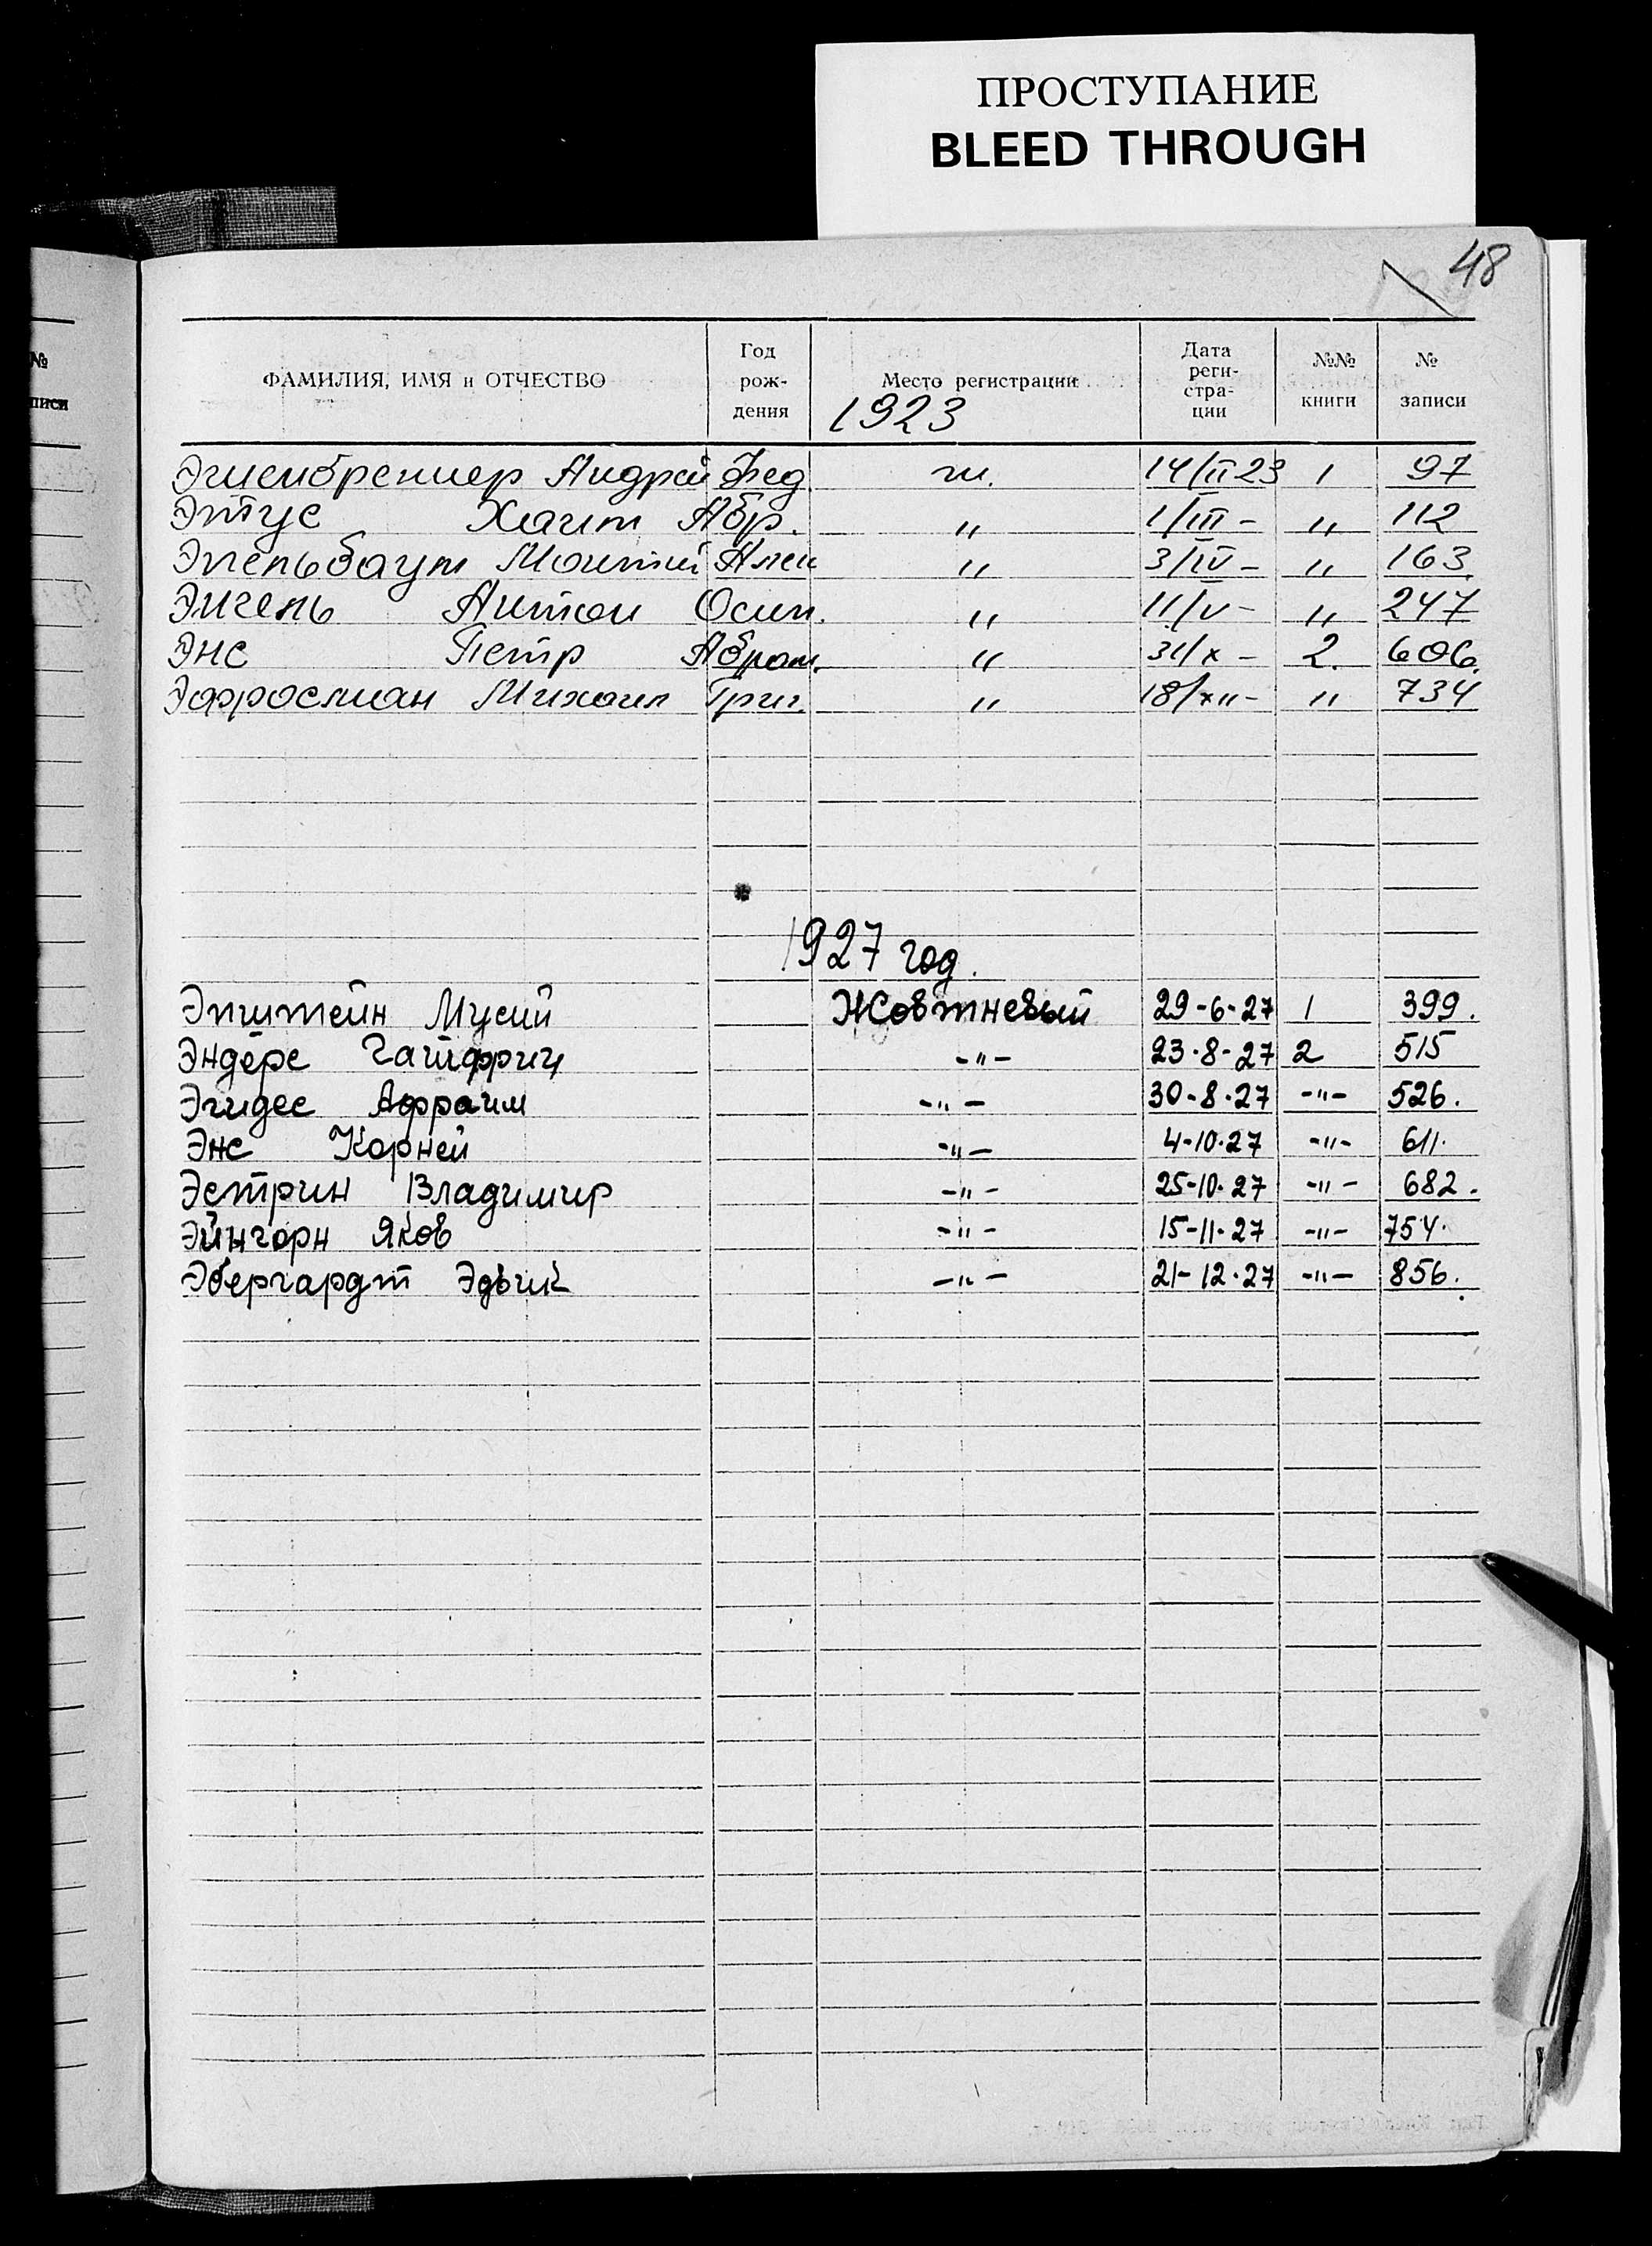 ПРОСТУПАНИЕ
BLEED THROUGH
48
№
писи
ФАМИЛИЯ, ИМЯ и ОТЧЕСТВО Год рож- дения Место регистрации Дата реги- стра- ции №№ книги № записи
1923
Андрей Фед. 14/II 23 1 97
Этус Хаим Абр. " 1/III - " 112
Эпельбаум " 3/IV - " 163
Энгель Антон Осип. " 11/V - " 247
Энс Петр Абрам. " 31/X - 2. 606.
Эфросман Михаил Григ. " 18/XII - " 734
1927 год.
Эпштейн Мусий Жовтневый 29-6-27 1 399.
Эндерс Гатфрид -"- 23-8-27 2 515
Эгидес Афраим -"- 30-8-27 -"- 526.
Энс Корней -"- 4-10-27 -"- 611.
Эстрин Владимир -"- 25-10-27 -"- 682.
Эйнгорн Яков -"- 15-11-27 -"- 754.
Эбергардт Эдвик -"- 21-12-27 -"- 856.